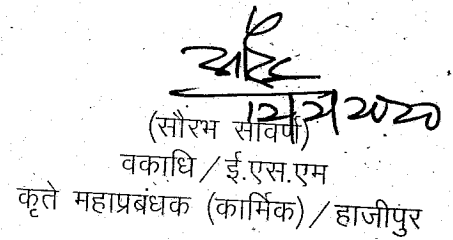 12/2/2020
(सौरभ सावर्ण)
वकाधि / ई.एस.एम
कृते महाप्रबंधक (कार्मिक) / हाजीपुर